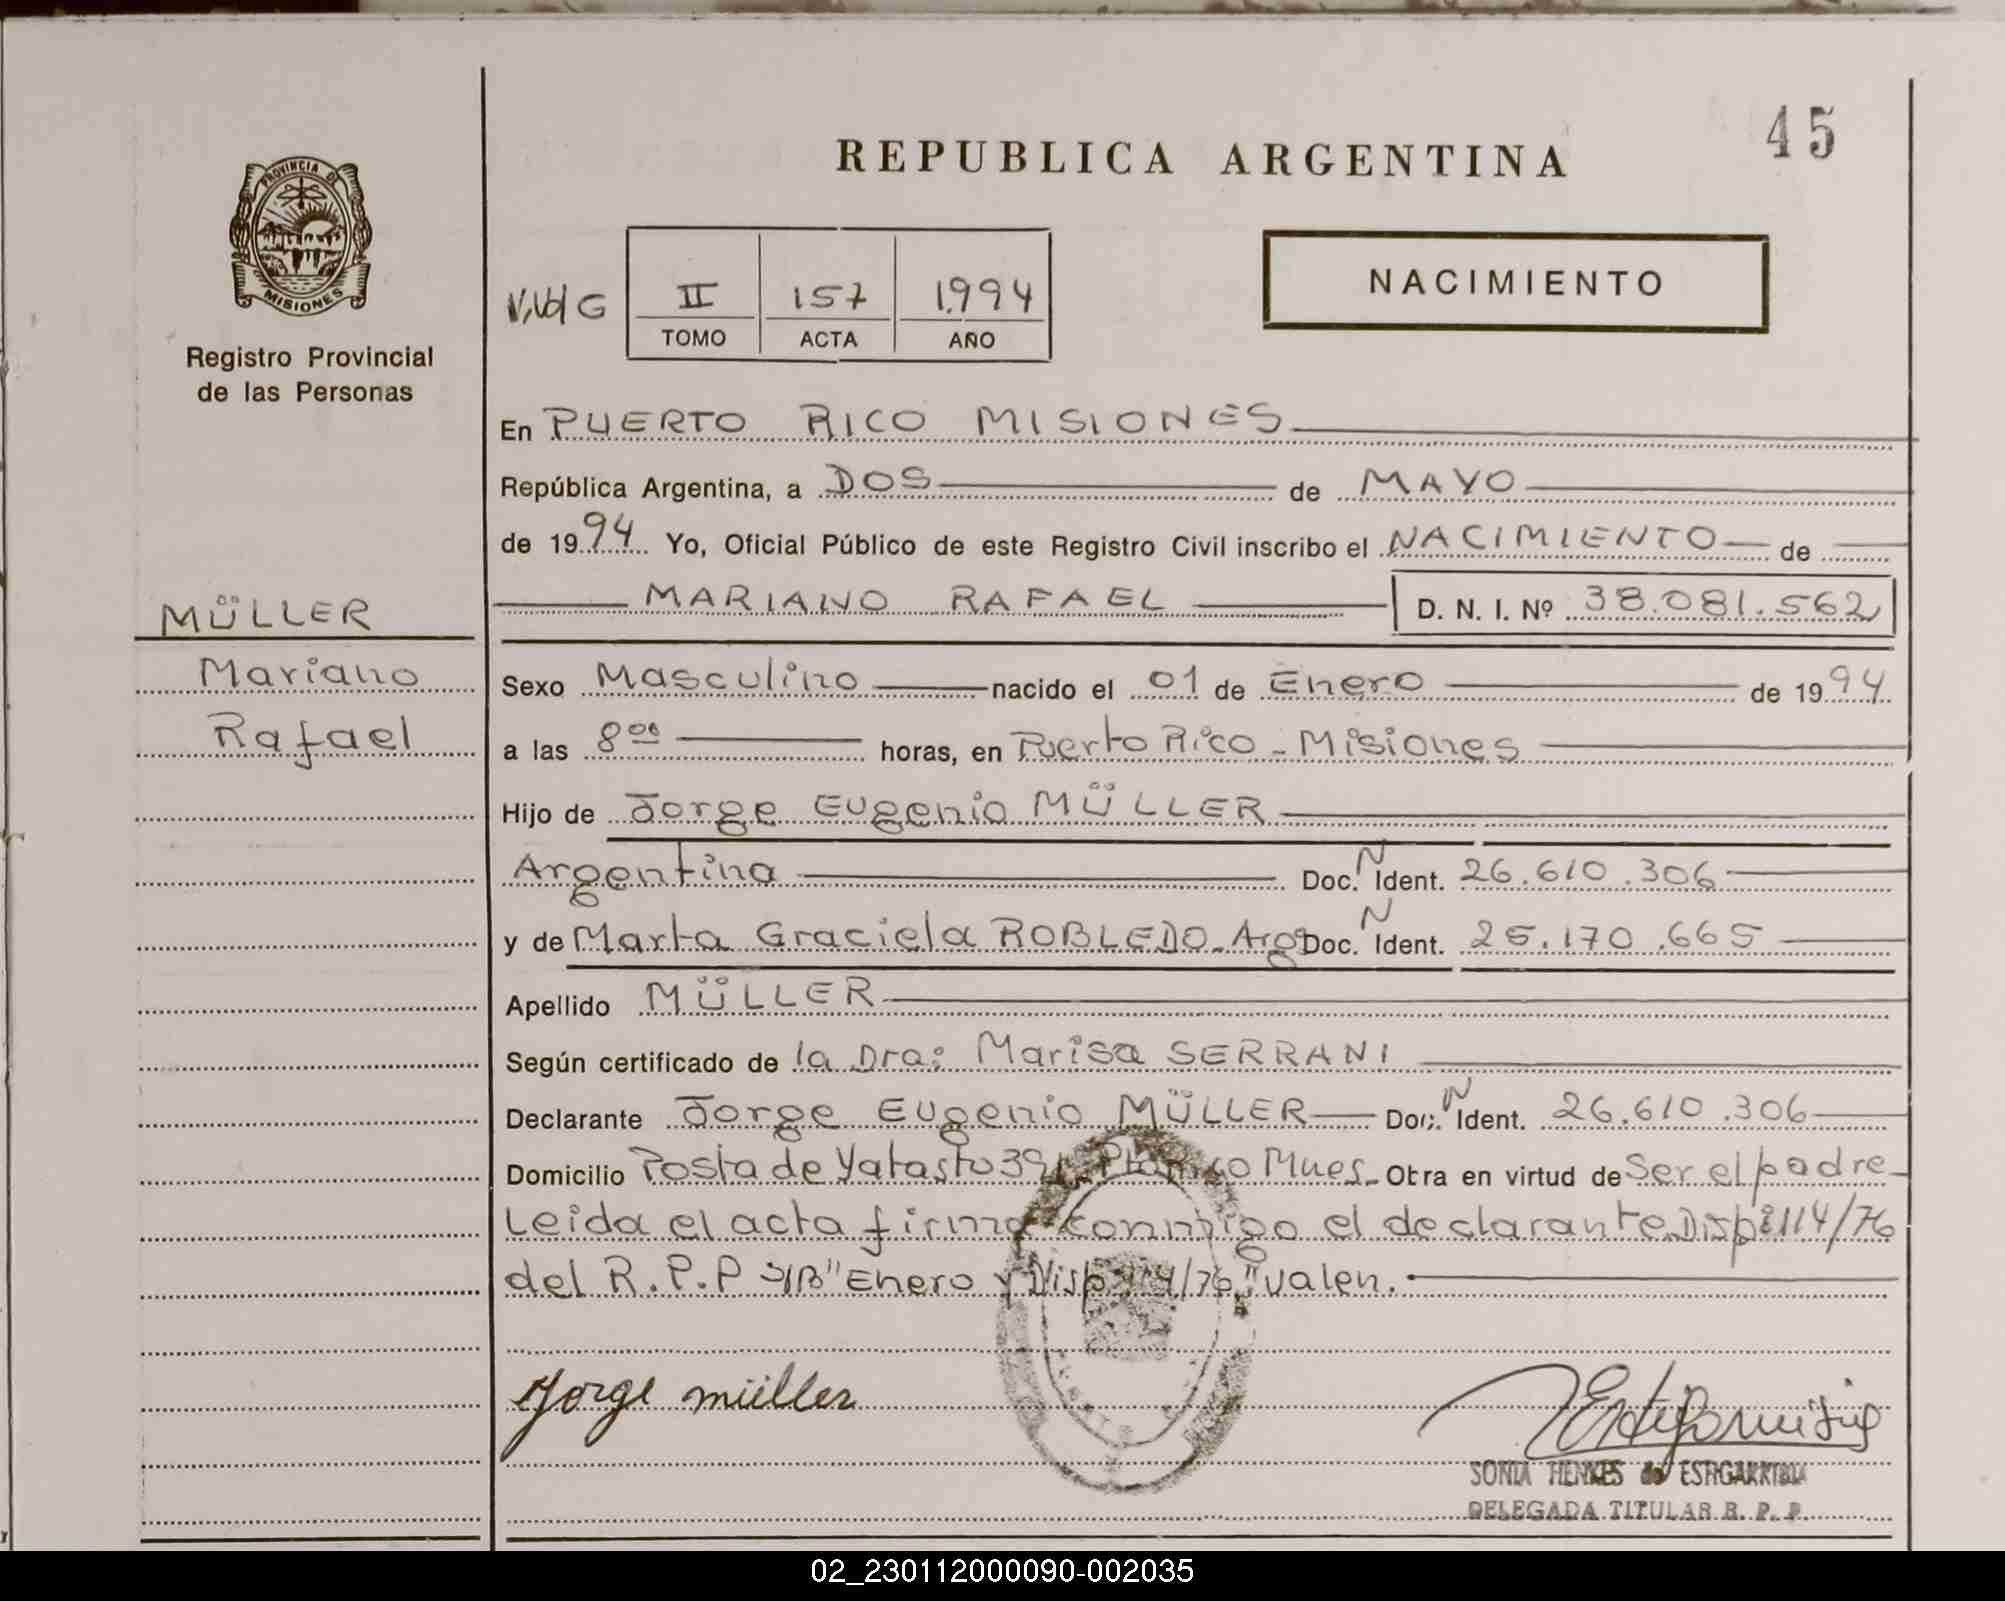 45
REPUBLICA ARGENTINA
PROVINCIA DE
MISIONES
Registro Provincial
de las Personas
II 157 1994
TOMO ACTA AÑO
NACIMIENTO
En PUERTO RICO MISIONES
República Argentina, a DOS de MAYO
de 1994 Yo, Oficial Público de este Registro Civil inscribo el NACIMIENTO de
MARIANO RAFAEL D. N. I. Nº 38.081.562
MÜLLER
Mariano
Rafael
Sexo Masculino nacido el 01 de Enero de 1994
a las 8 00 horas, en Puerto Rico - Misiones
Hijo de Jorge Eugenio MÜLLER
Argentina Doc. N Ident. 26.610.306
y de Marta Graciela ROBLEDO - Arg Doc. N Ident. 25.170.665
Apellido MÜLLER
Según certificado de la Dra: Marisa SERRANI
Declarante Jorge Eugenio MÜLLER Doc. N Ident. 26.610.306
Domicilio Posta de Yatasto Mnes. Obra en virtud de Ser el padre
Leida el acta firma conmigo el declarante. Disp 2114/76
del R.P.P S/B "Enero y Disp 2114/76" valen.
Jorge müller
SONIA HENKES de ESTIGARRIBIA
DELEGADA TITULAR R. P. P.
02_230112000090-002035